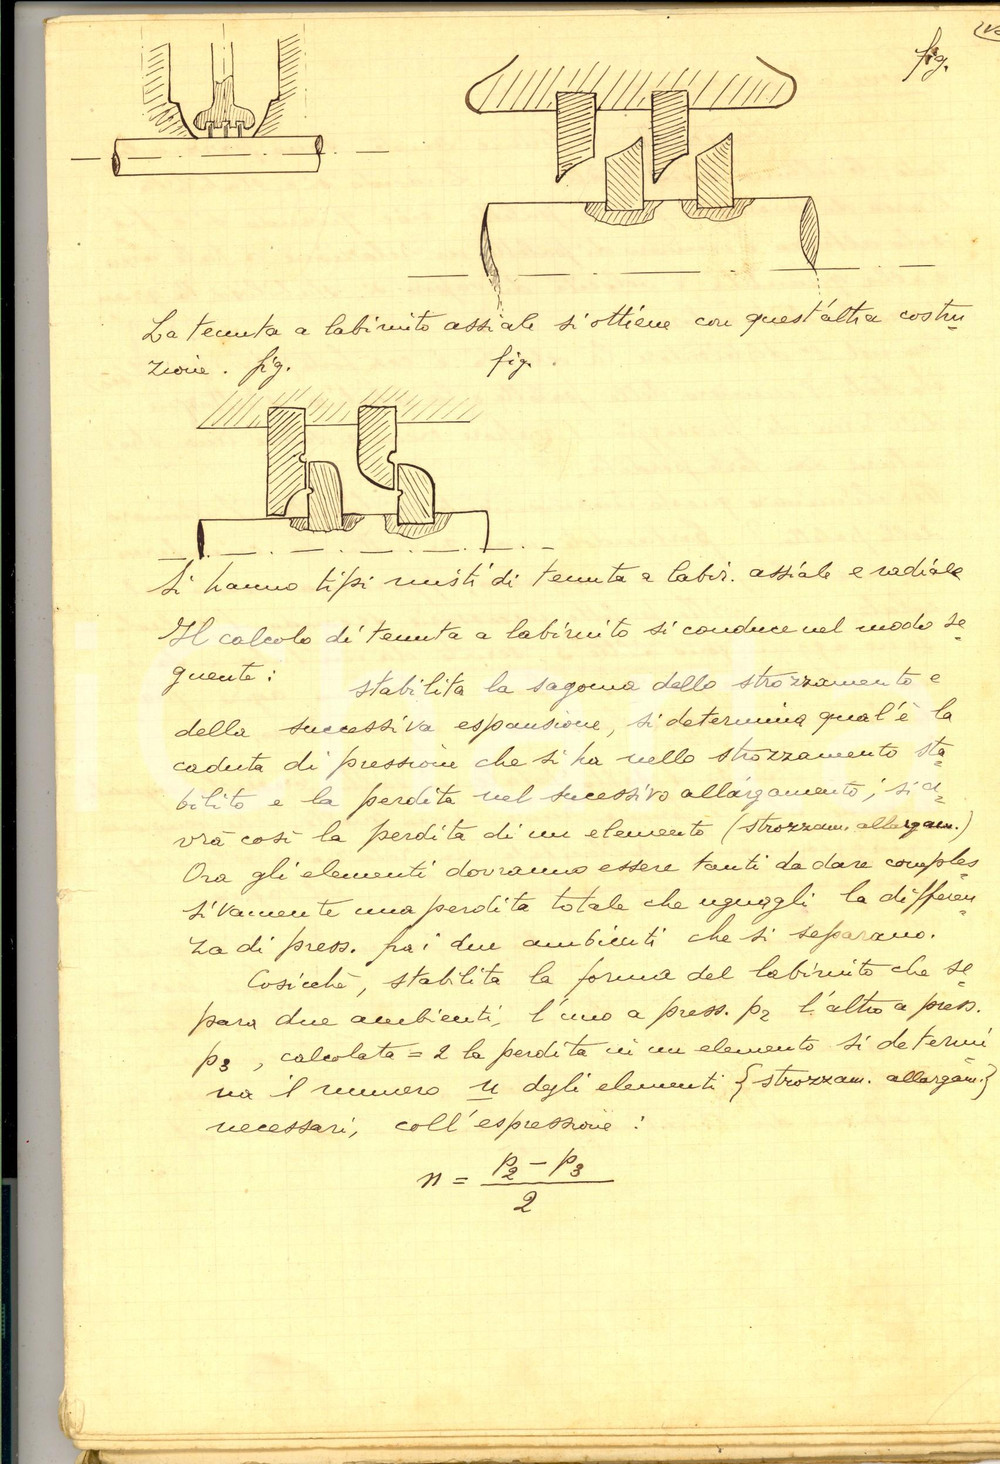 fig.
La tenuta a labirinto assiale si ottiene con quest'altra costru
zione. fig. fig.
Si hanno tipi misti di tenuta a labir. assiale e radiale
Il calcolo di tenuta a labirinto si conduce nel modo se
guente: stabilita la sagoma dello strozzamento e
della successiva espansione, si determina qual'è la
caduta di pressione che si ha nello strozzamento sta
bilito e la perdita nel sucessivo allargamento; si a
vrà così la perdita di un elemento (strozzam. allargam.)
Ora gli elementi dovranno essere tanti da dare comples
sivamente una perdita totale che uguagli la differen
za di press. fra i due ambienti che si separano.
Cosicchè, stabilita la forma del labirinto che se
para due ambienti, l'uno a press. p2 l'altro a press.
p3, calcolata = 2 la perdita in un elemento si determi
na il numero n degli elementi {strozzam. allargam.}
necessari, coll'espressione:
n = p2 - p3 / 2